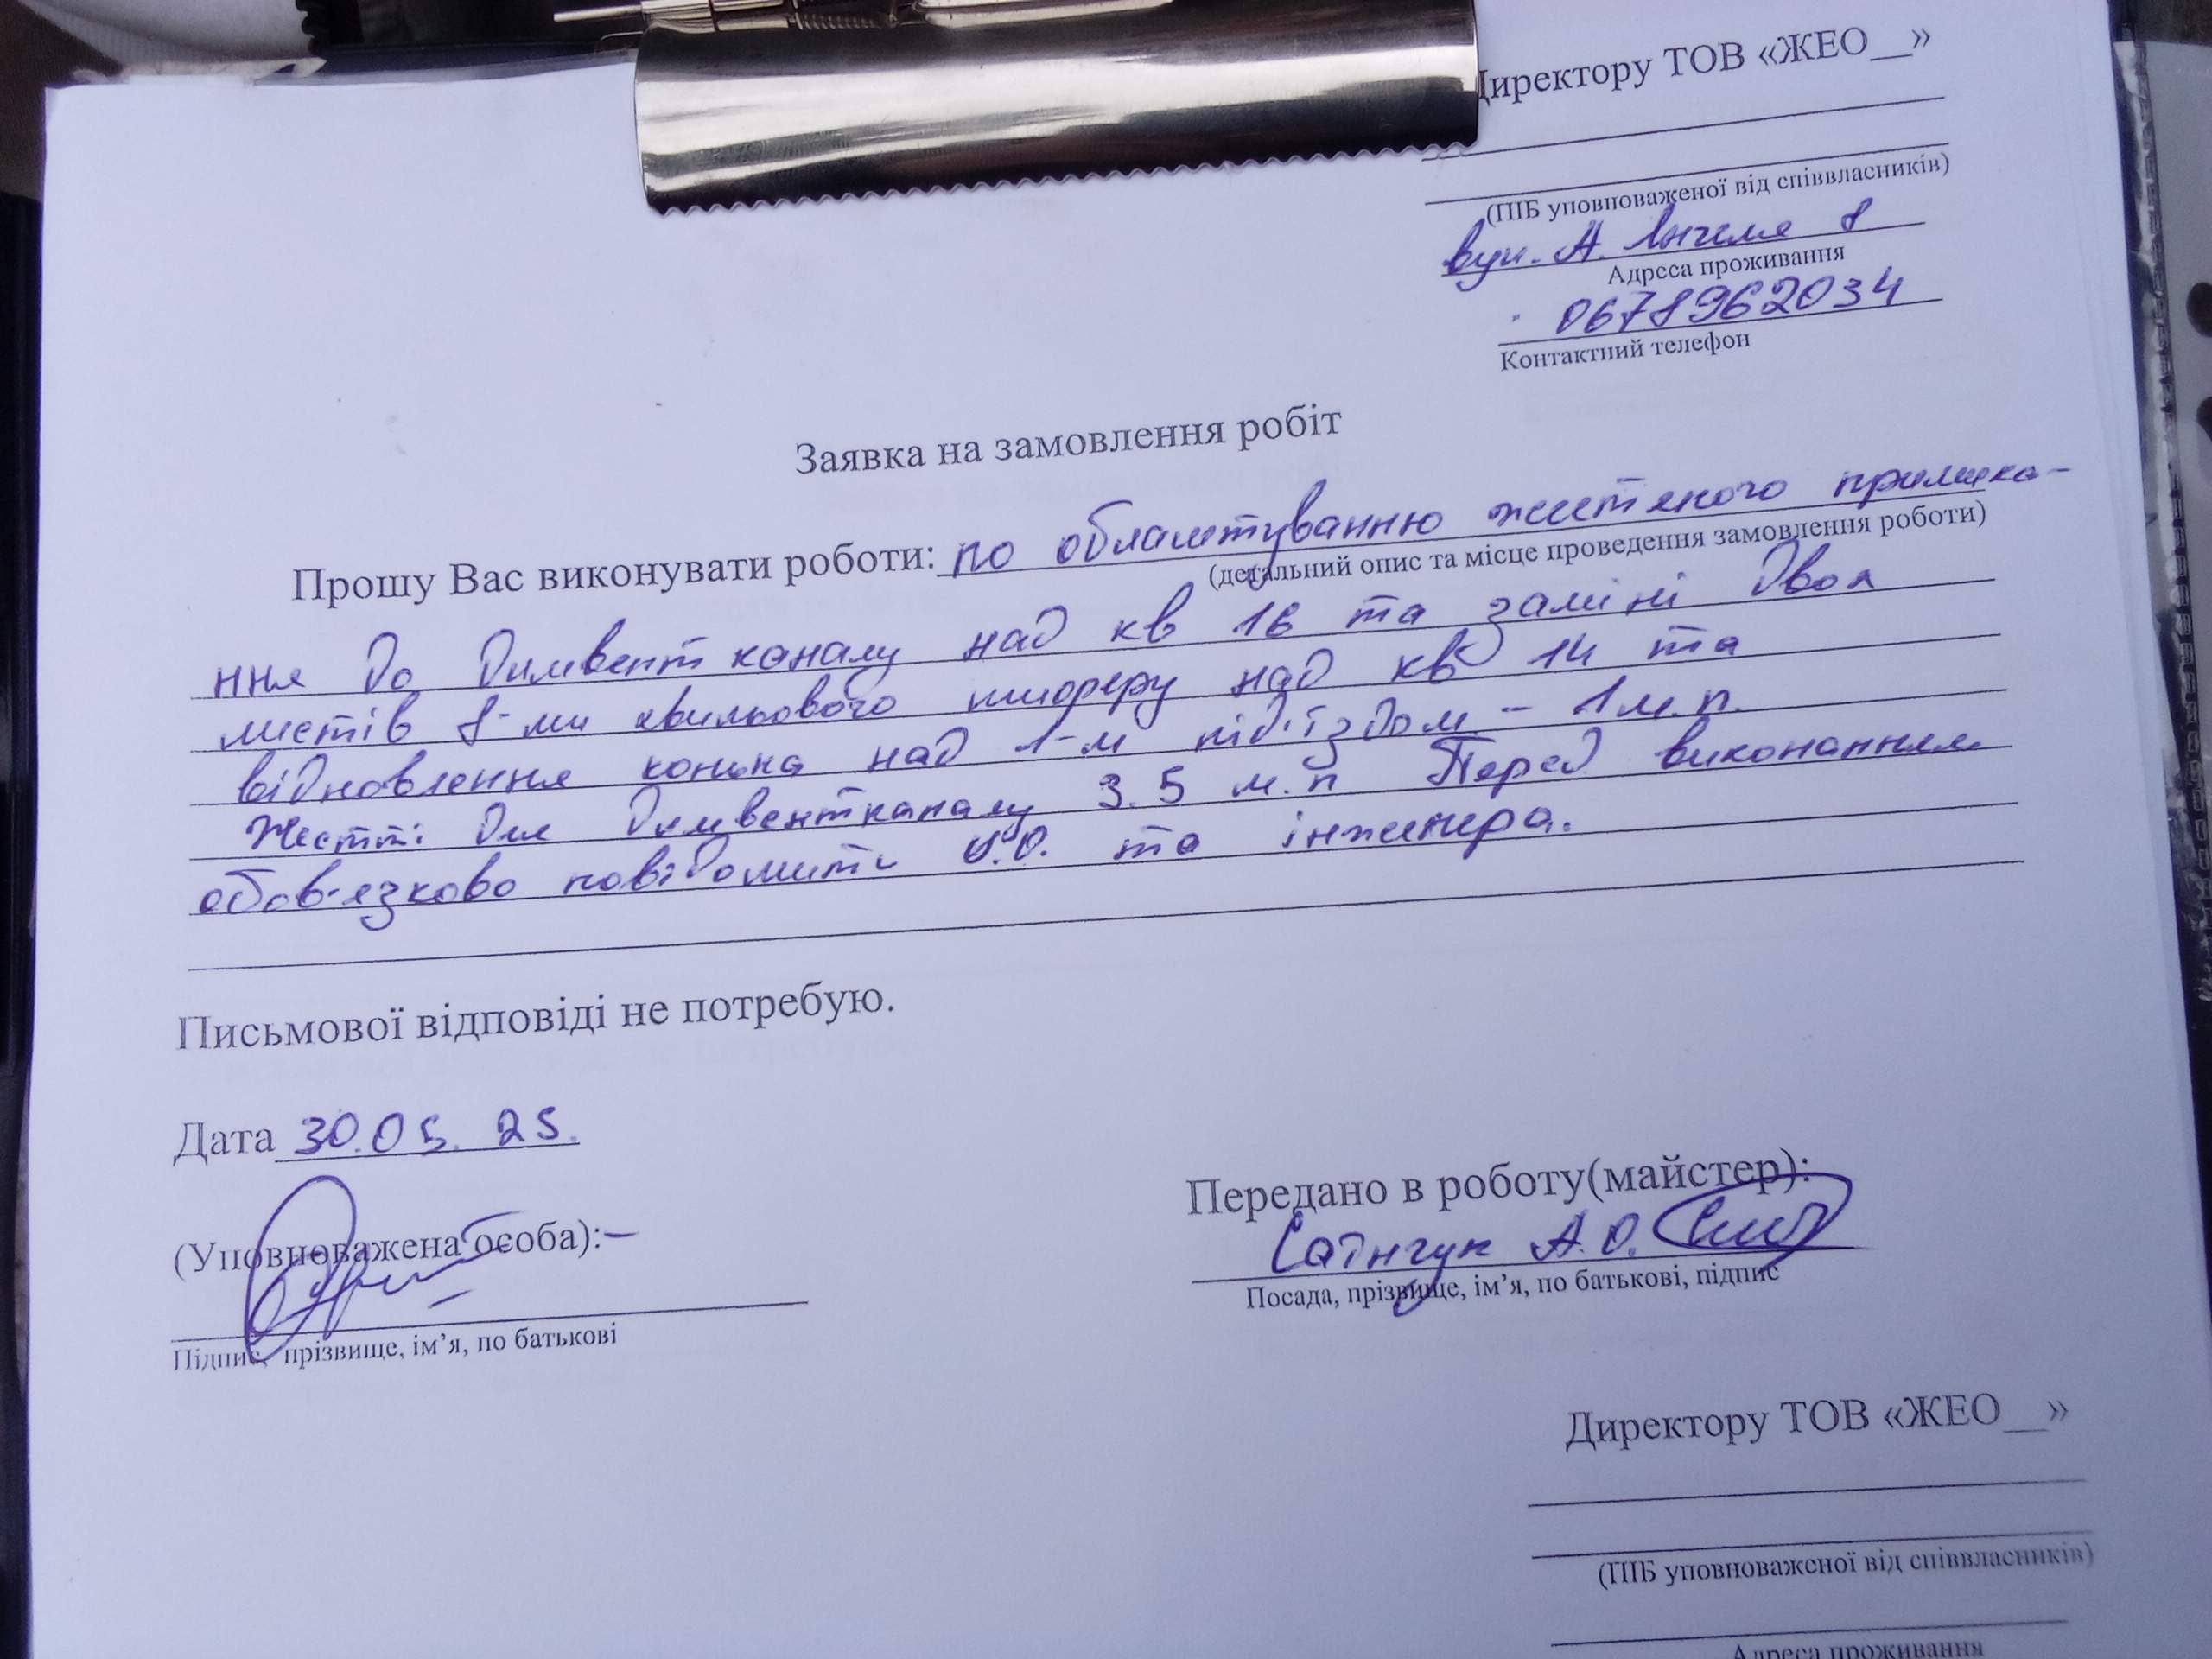 Директору ТОВ «ЖЕО__»
(ПІБ уповноваженої від співвласників)
вул. А. 8
Адреса проживання
0678962034
Контактний телефон
Заявка на замовлення робіт
Прошу Вас виконувати роботи: по облаштуванню жестяного примика-
(детальний опис та місце проведення замовлення роботи)
ння до димвент каналу над кв 16 та заміні двох
листів 8-ми хвильового шиферу над кв 14 та
відновлення конька над 1-м під'їздом - 1 м.п.
Жесті для димвентканалу 3.5 м.п Перед виконанням
обов'язково повідомити У.О. та інженера.
Письмової відповіді не потребую.
Дата 30.05.25.
(Уповноважена особа):
Підпис, прізвище, ім’я, по батькові
Передано в роботу(майстер):
А.О.
Посада, прізвище, ім’я, по батькові, підпис
Директору ТОВ «ЖЕО__»
(ПІБ уповноваженої від співвласників)
Адреса проживання